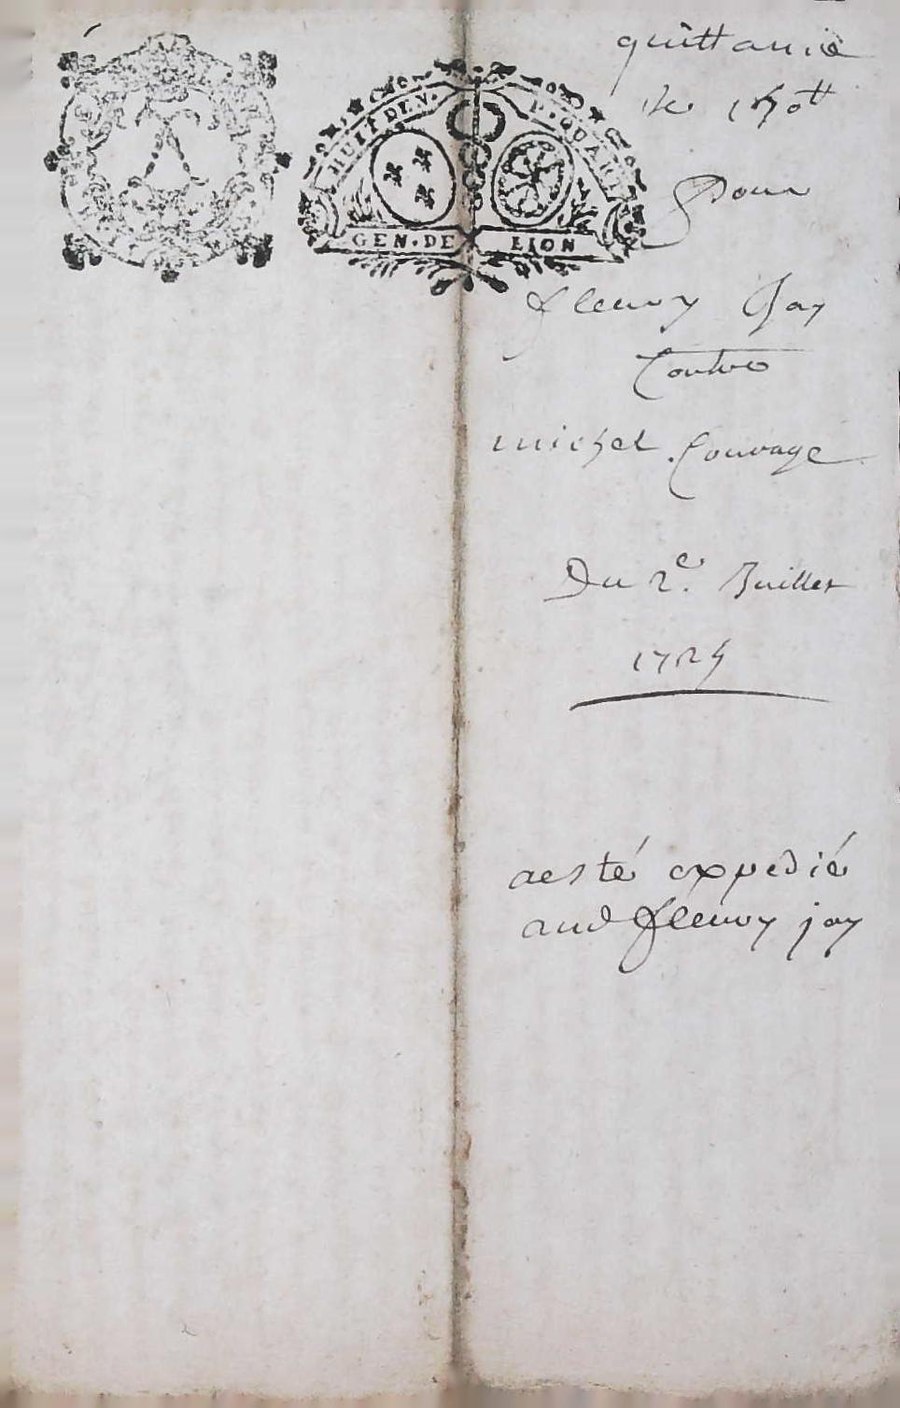 HUIT DE.V. P. QUART
GEN. DE LION
quittance
de 150tt
Pour
fleury Jay
Contre
michel Couvage
Du 2e. Juillet
1725
aesté expedié
aud fleury jay